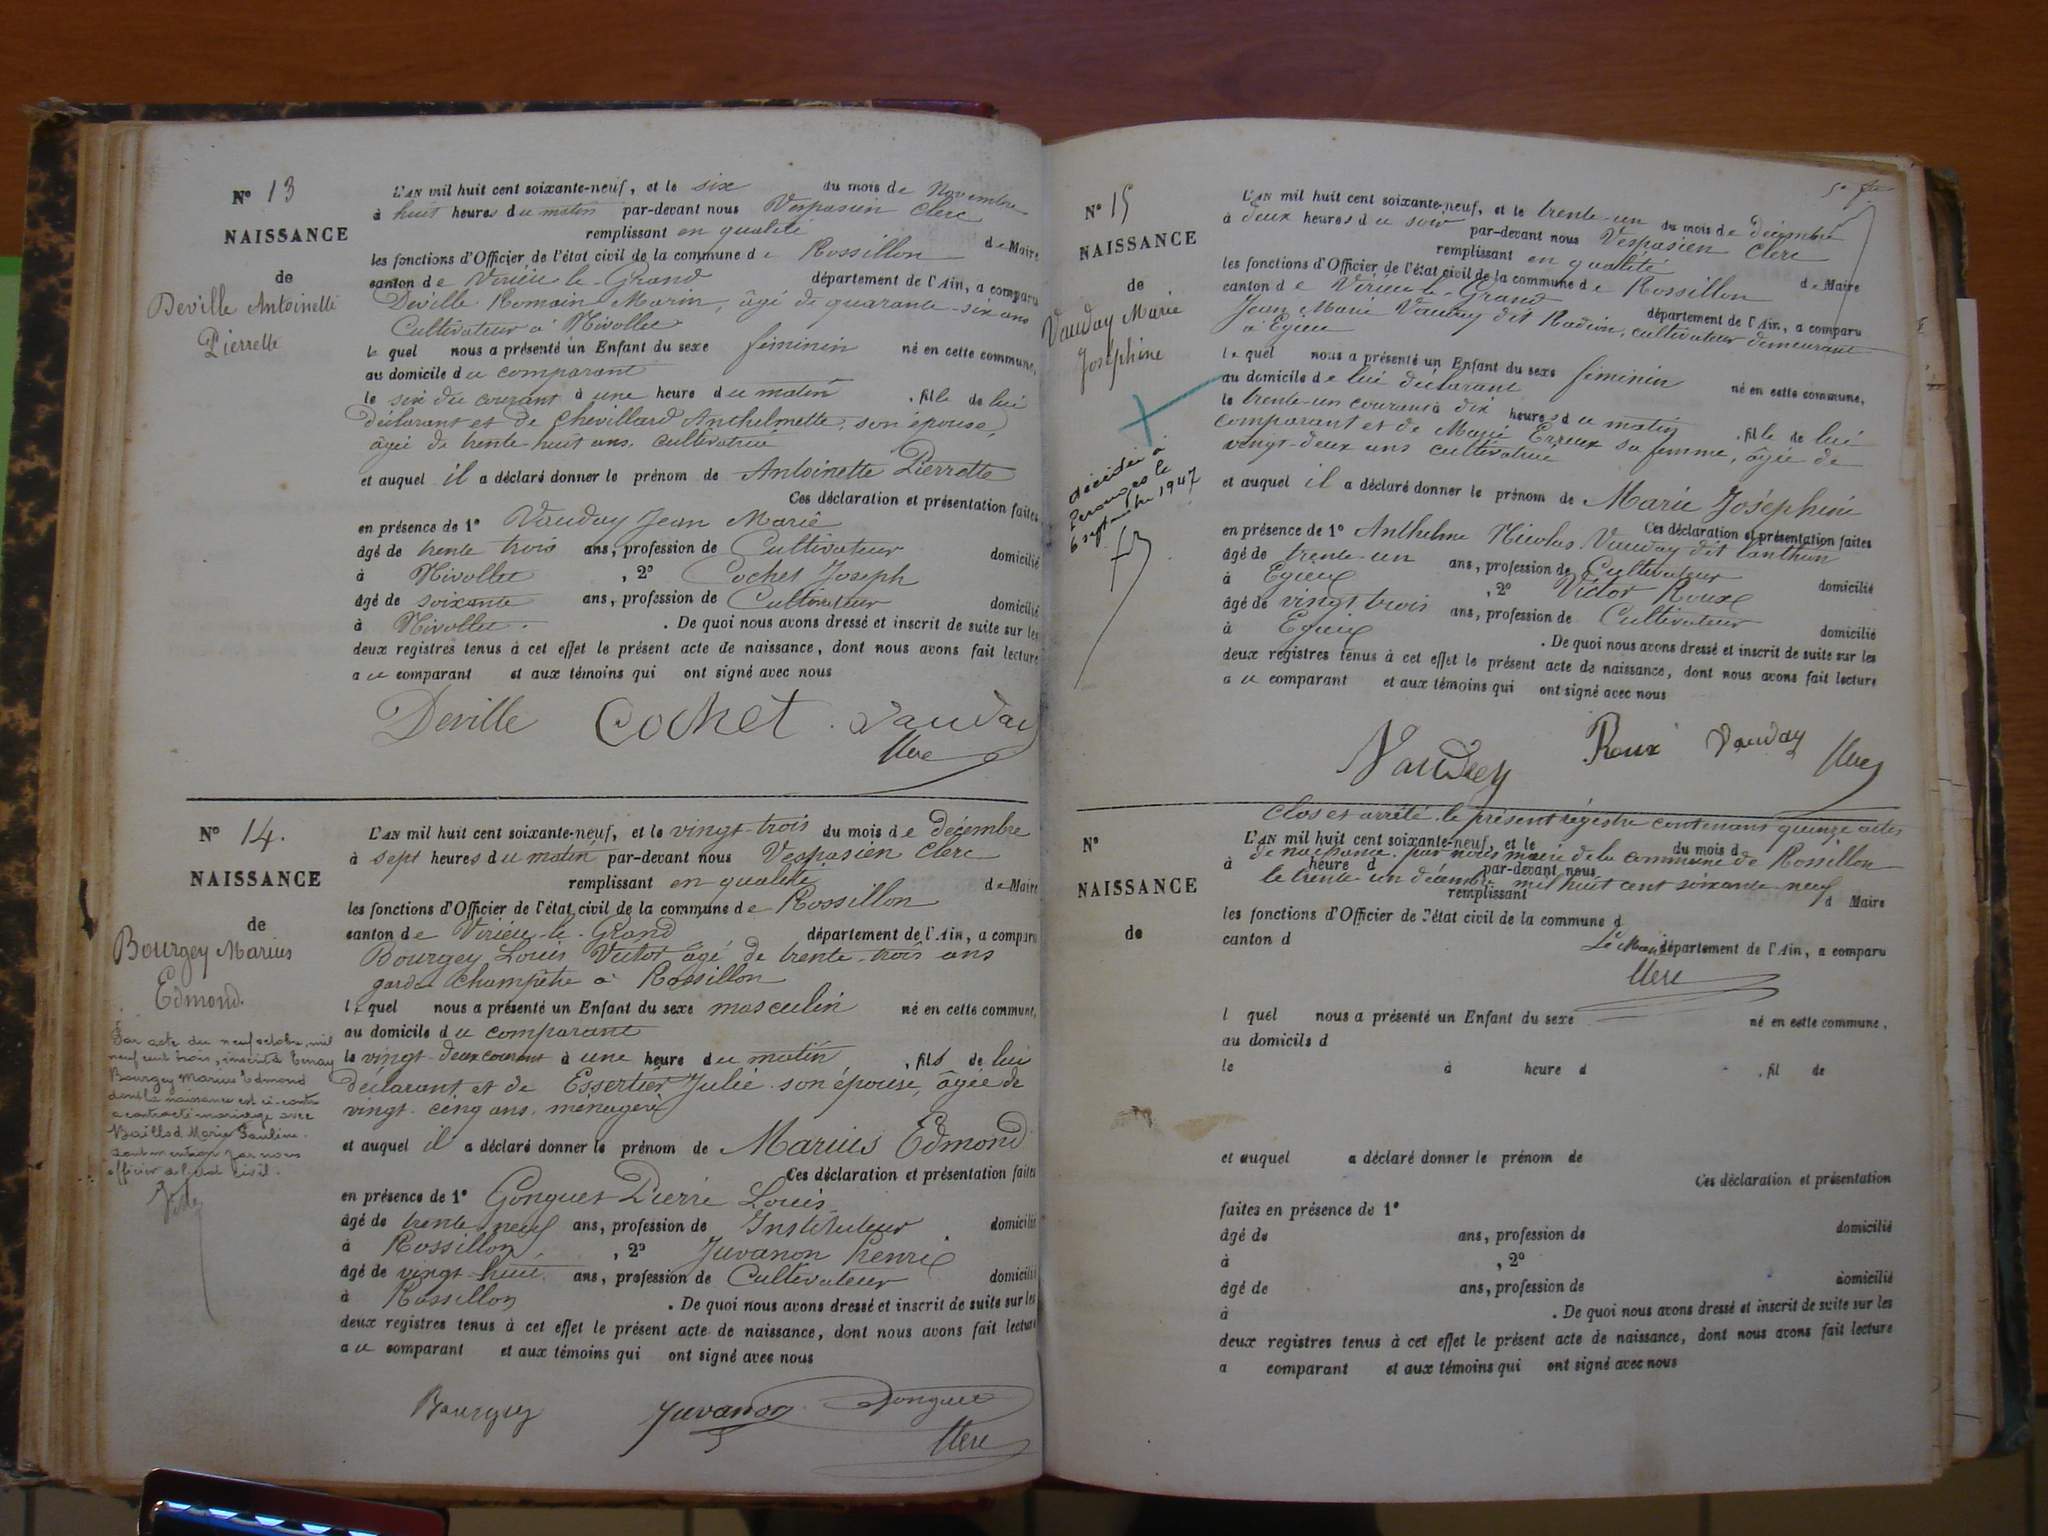 N° 13
NAISSANCE
de
Deville Antoinette
Pierrette
L'AN mil huit cent soixante-neuf, et le six du mois de Novembre
à huit heures du matin par-devant nous Vespasien Clerc
remplissant en qualité de Maire
les fonctions d'Officier de l'état civil de la commune de Rossillon
canton de Virieu-le-Grand département de l'Ain, a comparu
Deville Romain Marin, âgé de quarante-six ans
Cultivateur à Nivollet
lequel nous a présenté un Enfant du sexe féminin né en cette commune,
au domicile du comparant
le six du courant à une heure du matin, fille de lui
déclarant et de Chevillard Anthelmette, son épouse,
âgée de trente-huit ans, cultivatrice
et auquel il a déclaré donner le prénom de Antoinette Pierrette
Ces déclaration et présentation faites
en présence de 1° Vauday Jean Marie
âgé de trente trois ans, profession de Cultivateur domicilié
à Nivollet, 2° Cochet Joseph
âgé de soixante ans, profession de Cultivateur domicilié
à Nivollet. De quoi nous avons dressé et inscrit de suite sur les
deux registres tenus à cet effet le présent acte de naissance, dont nous avons fait lecture
au comparant et aux témoins qui ont signé avec nous
Deville Cochet Vauday
Clerc
N° 14.
NAISSANCE
de
Bourgey Marius
Edmond.
Par acte du neuf octobre mil
neuf cent trois, inscrit à Tenay
Bourgey Marius Edmond
dont la naissance est ci-contre
a contracté mariage avec
Marie Pauline.
dont mention par nous
officier de l'état civil.
L'AN mil huit cent soixante-neuf, et le vingt-trois du mois de décembre
à sept heures du matin par-devant nous Vespasien Clerc
remplissant en qualité de Maire
les fonctions d'Officier de l'état civil de la commune de Rossillon
canton de Virieu-le-Grand département de l'Ain, a comparu
Bourgey Louis Victor âgé de trente-trois ans
garde champêtre à Rossillon
lequel nous a présenté un Enfant du sexe masculin né en cette commune,
au domicile du comparant
le vingt-deux courant à une heure du matin, fils de lui
déclarant et de Essertier Julie son épouse, âgée de
vingt-cinq ans, ménagère
et auquel il a déclaré donner le prénom de Marius Edmond
Ces déclaration et présentation faites
en présence de 1° Gonguet Pierre Louis
âgé de trente neuf ans, profession de Instituteur domicilié
à Rossillon, 2° Juvanon henri
âgé de vingt-huit ans, profession de Cultivateur domicilié
à Rossillon. De quoi nous avons dressé et inscrit de suite sur les
deux registres tenus à cet effet le présent acte de naissance, dont nous avons fait lecture
au comparant et aux témoins qui ont signé avec nous
Bourgey Juvanon Gonguet
Clerc
N° 15
NAISSANCE
de
Vauday Marie
Joséphine
décédée à
Perouges le
6 septembre 1947
L'AN mil huit cent soixante-neuf, et le trente-un du mois de décembre
à deux heures du soir par-devant nous Vespasien Clerc
remplissant en qualité de Maire
les fonctions d'Officier de l'état civil de la commune de Rossillon
canton de Virieu-le-Grand département de l'Ain, a comparu
Jean Marie Vauday dit Radion, cultivateur demeurant
à Egieu
lequel nous a présenté un Enfant du sexe féminin né en cette commune,
au domicile de lui déclarant
le trente-un courant à dix heures du matin, fille de lui
comparant et de Marie Erreux sa femme, âgée de
vingt-deux ans cultivatrice
et auquel il a déclaré donner le prénom de Marie Joséphine
Ces déclaration et présentation faites
en présence de 1° Anthelme Nicolas Vauday dit
âgé de trente-un ans, profession de Cultivateur domicilié
à Egieux, 2° Victor Roux
âgé de vingt trois ans, profession de Cultivateur domicilié
à Egieux. De quoi nous avons dressé et inscrit de suite sur les
deux registres tenus à cet effet le présent acte de naissance, dont nous avons fait lecture
au comparant et aux témoins qui ont signé avec nous
Vauday Roux Vauday Clerc
Clos et arrêté le présent régistre contenant quinze actes
de naissance par nous maire de la commune de Rossillon
le trente-un décembre mil huit cent soixante-neuf
Le Maire
Clerc
N°
NAISSANCE
de
L'AN mil huit cent soixante-neuf, et le du mois d
à heure d par-devant nous
remplissant d Maire
les fonctions d'Officier de l'état civil de la commune d
canton d département de l'Ain, a comparu
l quel nous a présenté un Enfant du sexe né en cette commune,
au domicile d
le à heure d , fil de
et auquel a déclaré donner le prénom de
Ces déclaration et présentation
faites en présence de 1°
âgé de ans, profession de domicilié
à , 2°
âgé de ans, profession de domicilié
à . De quoi nous avons dressé et inscrit de suite sur les
deux registres tenus à cet effet le présent acte de naissance, dont nous avons fait lecture
a comparant et aux témoins qui ont signé avec nous